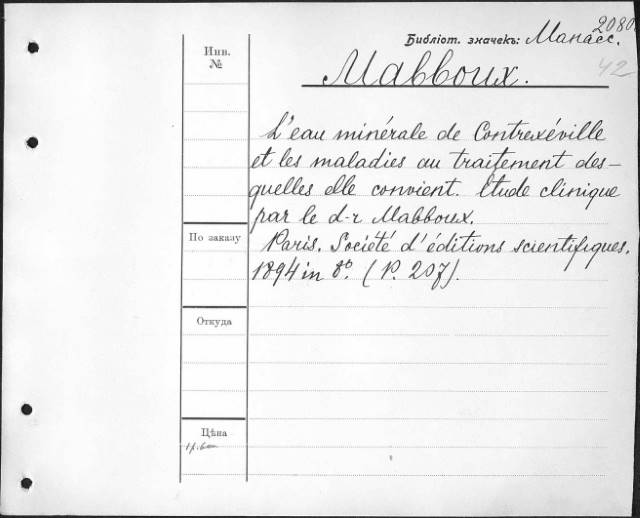 2080
Библіот. значекъ: Манасс.
42
Инв.
№
Mabboux.
L'eau minérale de Contrexéville
et les maladies au traitement des-
quelles elle convient. Etude clinique
par le d-r Mabboux.
По заказу
Paris. Société d'éditions scientifiques.
1894 in 8°. (P. 207).
Откуда
Цѣна